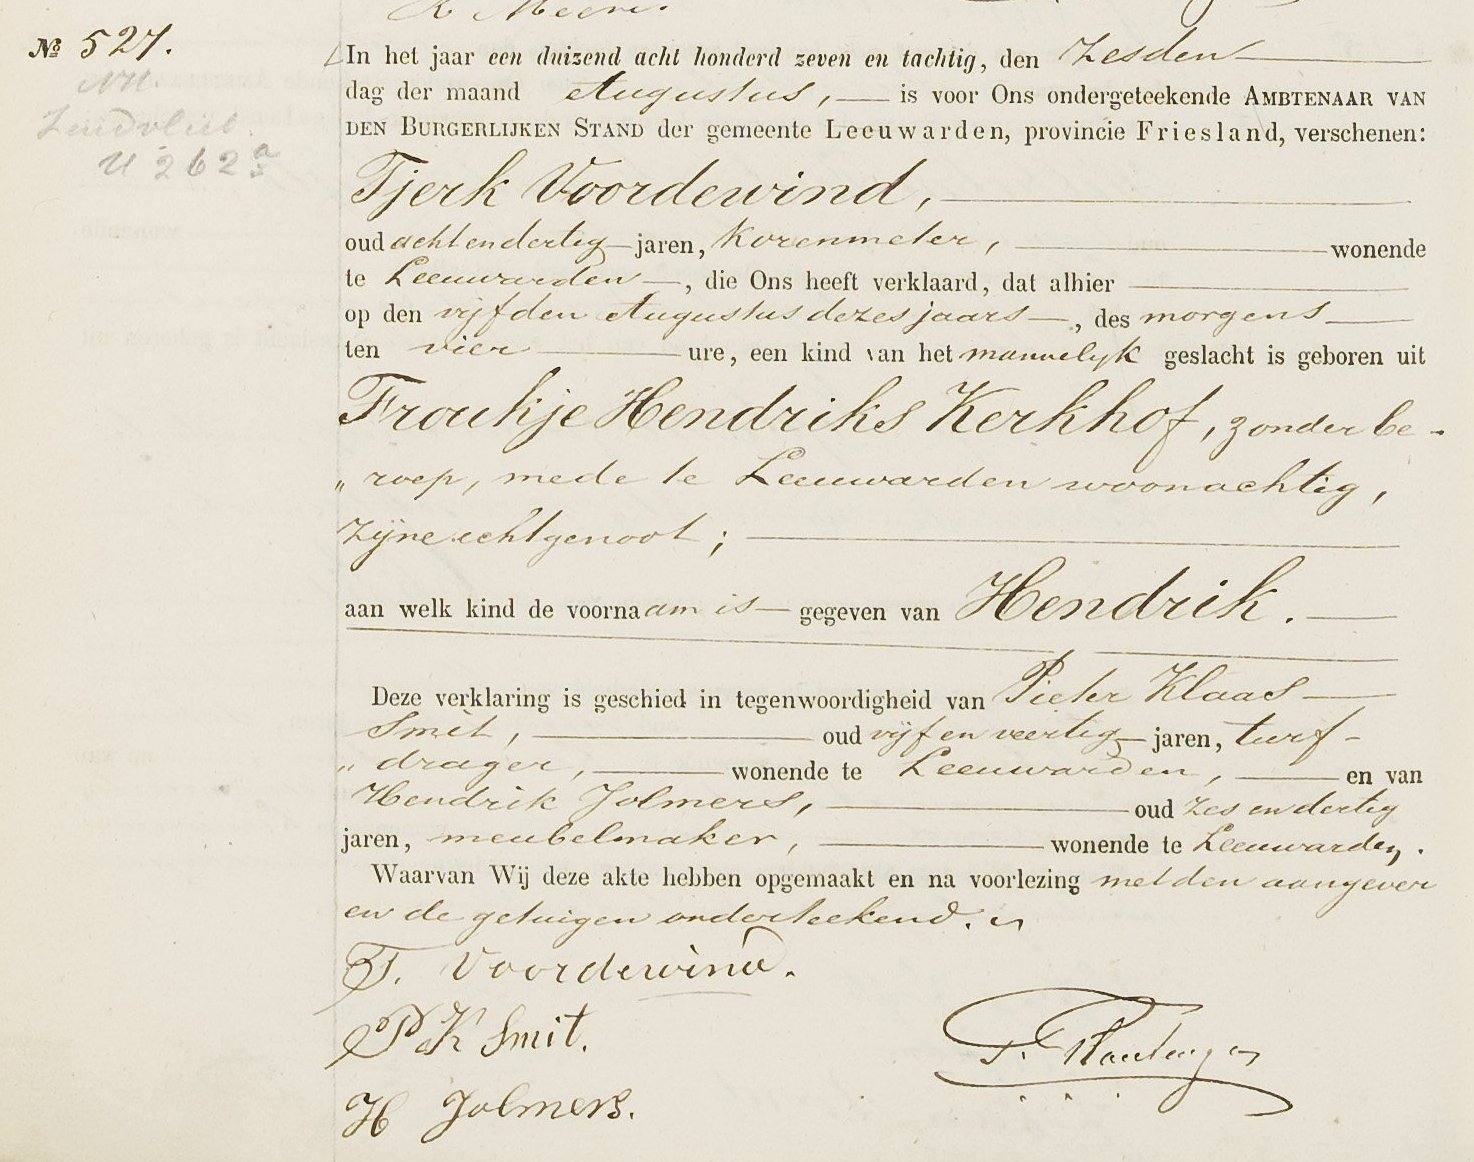 R Meer
№ 527.
In het jaar een duizend acht honderd zeven en tachtig, den Zesden
dag der maand Augustus, is voor Ons ondergeteekende AMBTENAAR VAN
DEN BURGERLIJKEN STAND der gemeente Leeuwarden, provincie Friesland, verschenen:
Zuidvliet
U 262
Tjerk Voordewind,
oud acht en dertig jaren, Korenmeter, wonende
te Leeuwarden, die Ons heeft verklaard, dat alhier
op den vijfden Augustus dezes jaars, des morgens
ten vier ure, een kind van het mannelyk geslacht is geboren uit
Froukje Hendriks Kerkhof, zonder be-
„ roep, mede te Leeuwarden woonachtig,
Zijne echtgenoot;
aan welk kind de voornaam is gegeven van Hendrik.
Deze verklaring is geschied in tegenwoordigheid van Pieter Klaas
Smit, oud vijf en veertig jaren, turf-
„ drager, wonende te Leeuwarden, en van
Hendrik Jolmers, oud zes en dertig
jaren, meubelmaker, wonende te Leeuwarden.
Waarvan Wij deze akte hebben opgemaakt en na voorlezing met den aangever
en de getuigen onderteekend.
T. Voordewind.
P K Smit.
H Jolmers.